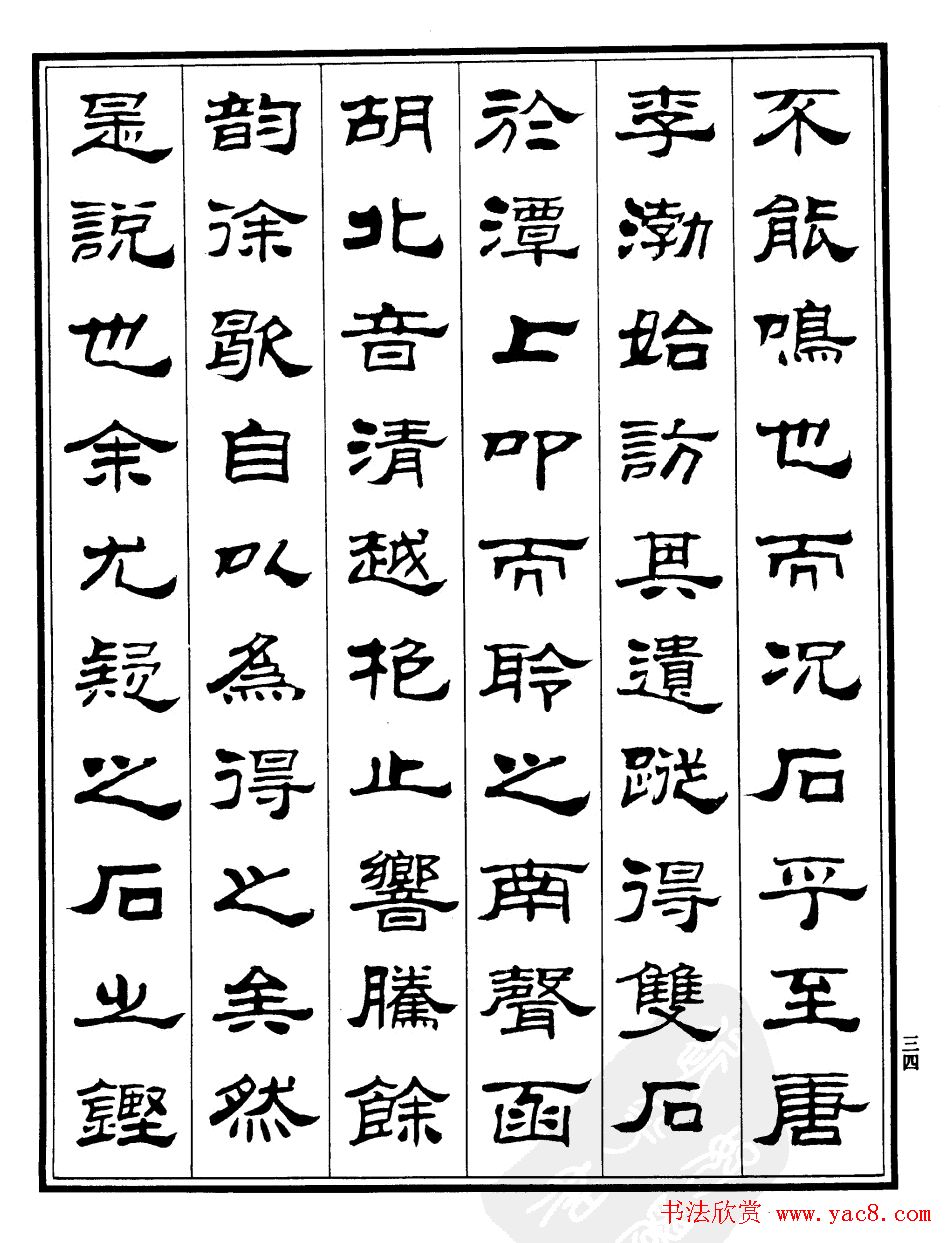 不能鳴也而況石乎至唐
李渤始訪其遺蹤得雙石
於潭上叩而聆之南聲函
胡北音清越枹止響騰餘
韵徐歇自以為得之矣然
是說也余尤疑之石之鏗
三四
书法欣赏 www.yac8.com